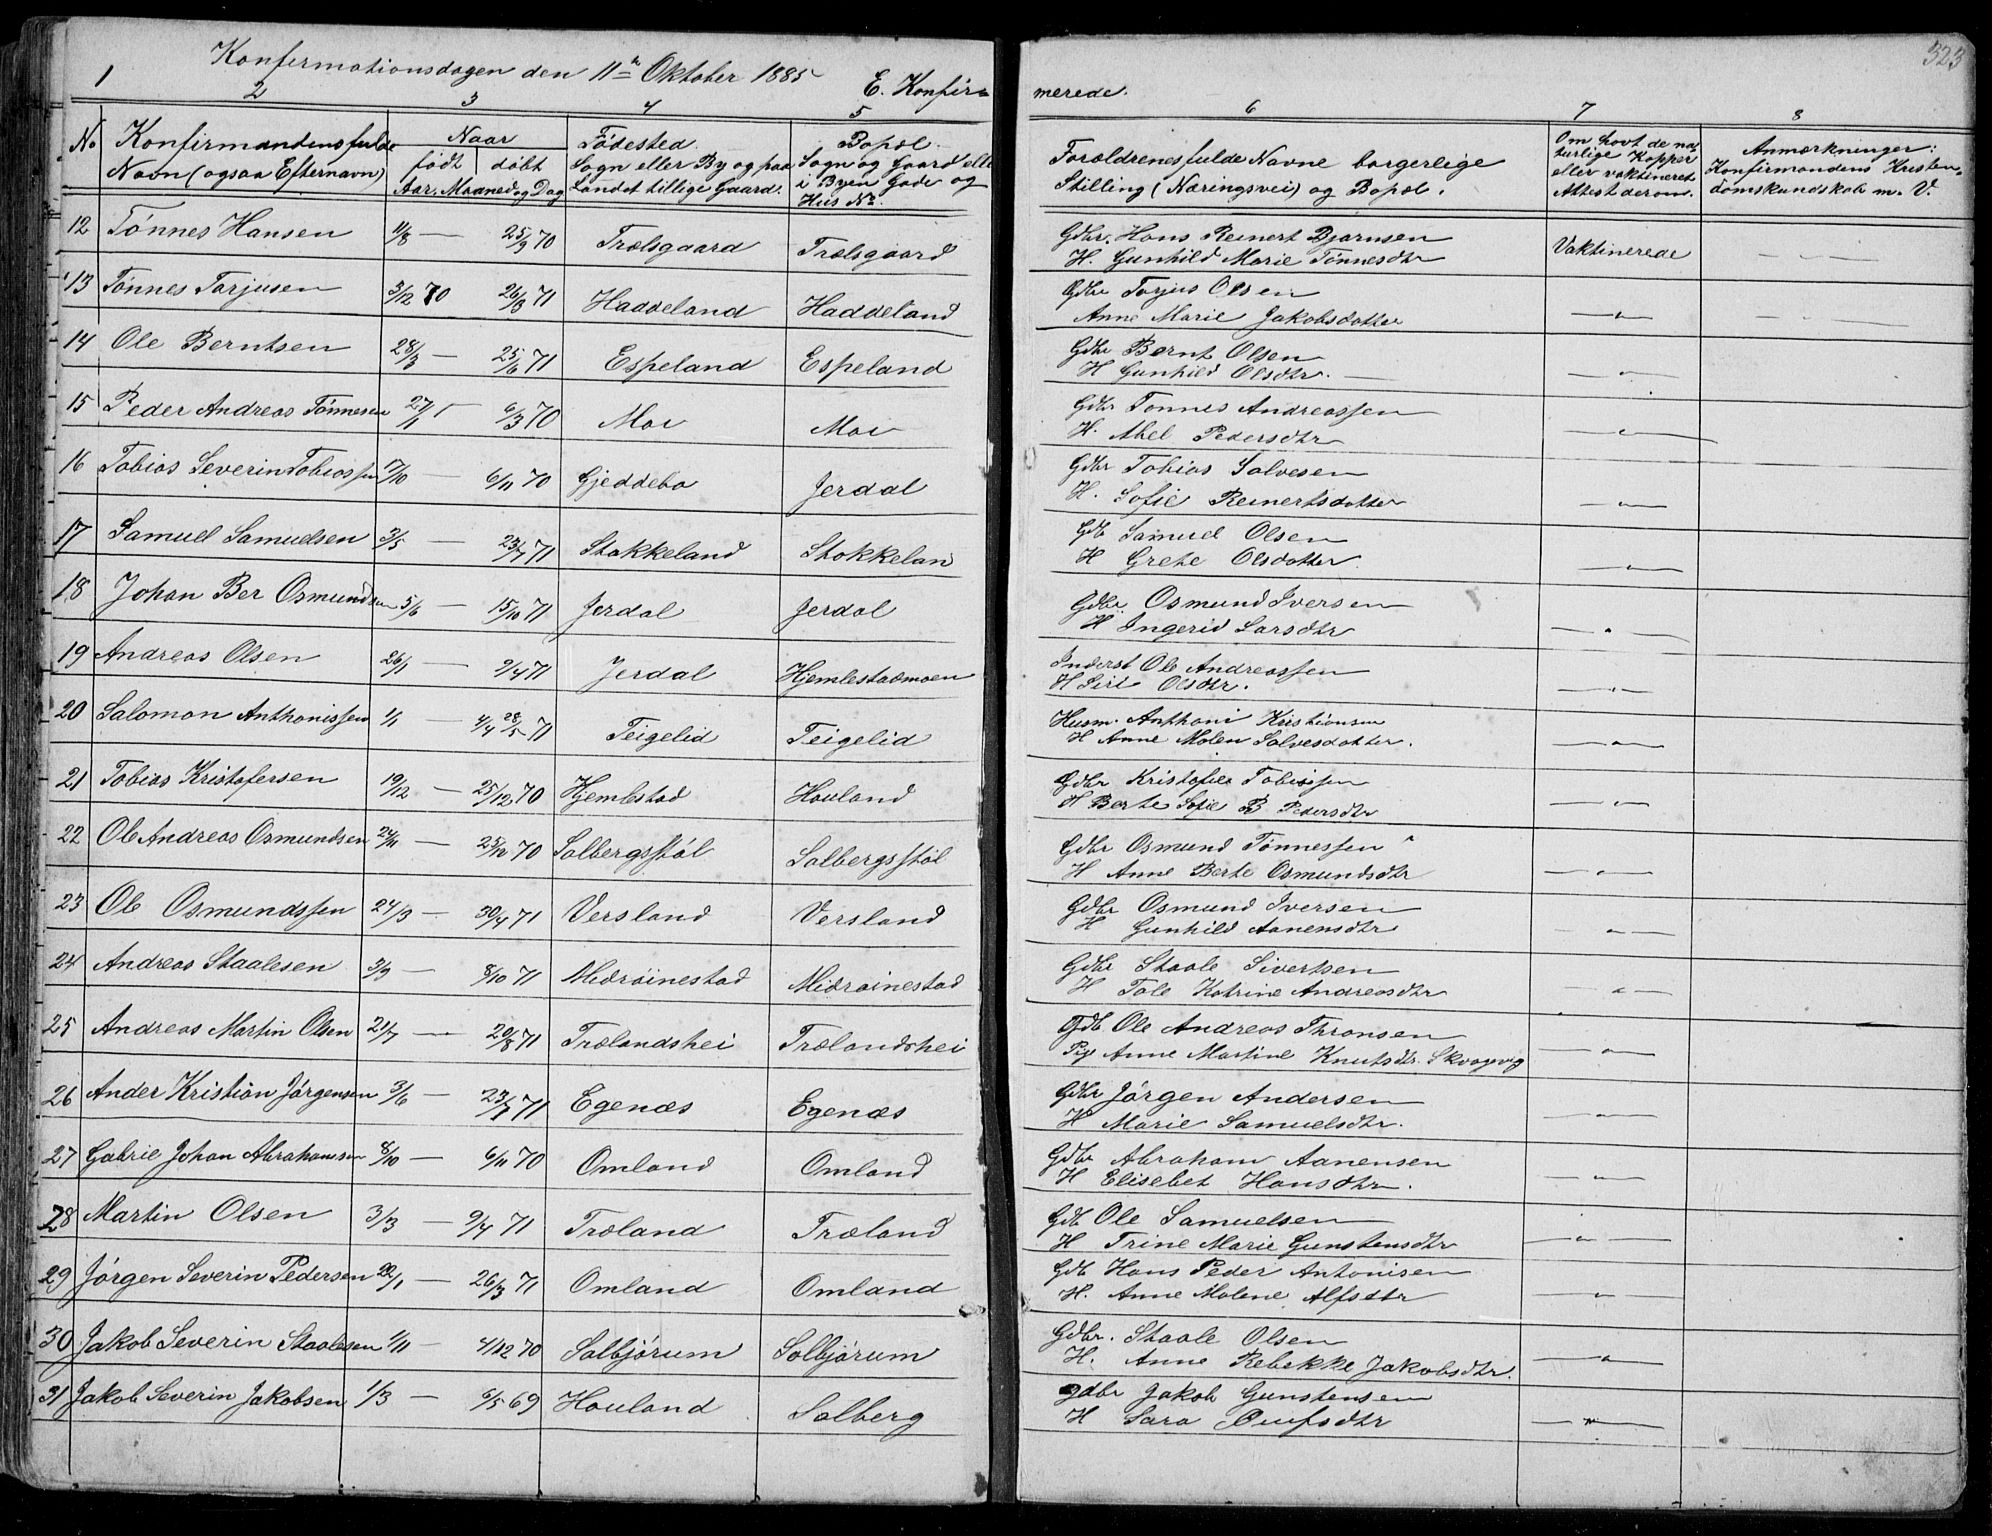 323
Konfirmationsdagen den 11te Oktober 1885
E. Konfirmerede.
1 2 3 4 5 6 7 8
No Konfirmandens fulde Navn (ogsaa Efternavn)
Naar født | døbt Aar, Maaned og Dag
Fødested. Sogn eller By og paa Landet tillige Gaard.
Bopæl. Sogn og Gaard eller i Byen Gade og Hus No.
Forældrenes fulde Navne borgerlige Stilling (Næringsvei) og Bopæl.
Om havt de naturlige Kopper eller vaktineret Attest derom.
Anmærkninger: Konfirmandens Kristendomskundskab m. V.
12 Tønnes Hansen 11/8 — 25/9 70 Trælsgaard Trælsgaard Gdbr. Hans Reinert Bjørnsen Vaktinerede — " —
H. Gunhild Marie Tønnesdtr
13 Tønnes Tarjusen 3/12 70 26/3 71 Haddeland Haddeland Gdbr Torjus Olsen
Anne Marie Jakobsdotter — " — — " —
14 Ole Berntsen 28/3 — 25/6 71 Espeland Espeland Gdbr Bernt Olsen
H Gunhild Olsdtr. — " —
15 Peder Andreas Tønnesen 27/1 — 6/3 70 Moi Moi Gdbr Tønnes Andreassen
H. Abel Pedersdtr — " —
16 Tobias Severin Tobiassen 17/10 — 6/11 70 Gjeddebo Jerdal Gdbr Tobias Salvesen
H. Sofie Reinertsdotter — " —
17 Samuel Samuelsen 3/5 — 23/7 71 Stokkeland Stokkelan Gdb Samuel Olsen
H Grete Olsdotter — " —
18 Johan Ber Osmundsen 5/6 — 15/10 71 Jerdal Jerdal Gdbr Osmund Iversen
H Ingerid Larsdtr — " —
19 Andreas Olsen 26/1 — 9/4 71 Jerdal Hjemlestadmoen Inderst Ole Andreassen
H Siri Olsdtr. — " —
20 Salomon Anthonissen 1/1 — 4/4 28/5 71 Teigelid Teigelid Husm. Anthoni Kristiansen
H Anne Malen Salvesdotter. — " —
21 Tobias Kristofersen 19/12 — 25/12 70 Hjemlestad Houland Gdbr Kristofer Tobiassen
H Berte Sofie B Pedersdtr — " —
22 Ole Andreas Osmundsen 24/11 — 25/12 70 Solbergsstøl Solbergsstøl Gdbr Osmund Tønnessen
H Anne Berte Osmundsdtr — " —
23 Ole Osmundssen 24/3 — 30/4 71 Versland Versland Gdbr Osmund Iversen
H Gunhild Aanensdtr — " —
24 Andreas Staalesen 3/9 — 8/10 71 Midrøinestad Midrøinestad Gdbr Staale Sivertsen
H Tale Katrine Andreasdtr — " —
25 Andreas Martin Olsen 21/7 — 20/8 71 Trælandshei Trælandshei Gdb Ole Andreas Thronsen
Pige Anne Martine Knutsdtr. Skvagevig — " —
26 Ander Kristian Jørgensen 3/6 — 23/7 71 Egenæs Egenæs Gdbr Jørgen Andersen
H Marie Samuelsdtr. — " —
27 Gabriel Johan Abrahamsen 8/10 — 6/11 70 Omland Omland Gdbr Abraham Aanensen
H Elisebet Hansdtr. — " —
28 Martin Olsen 3/3 — 9/4 71 Træland Træland Gdb Ole Samuelsen
H Trine Marie Gunstensdtr — " —
29 Jørgen Severin Pedersen 22/1 — 26/3 71 Omland Omland Gdb Hans Peder Antonisen
H. Anne Malene Alfsdtr — " —
30 Jakob Severin Staalesen 1/11 — 4/12 70 Solbjørum Solbjørum Gdbr. Staale Olsen
H. Anne Rebekke Jakobsdtr. — " —
31 Jakob Severin Jakobsen 1/3 — 6/5 69 Houland Solberg gdbr Jakob Gunstensen
H Sara Ouufsdtr — " —